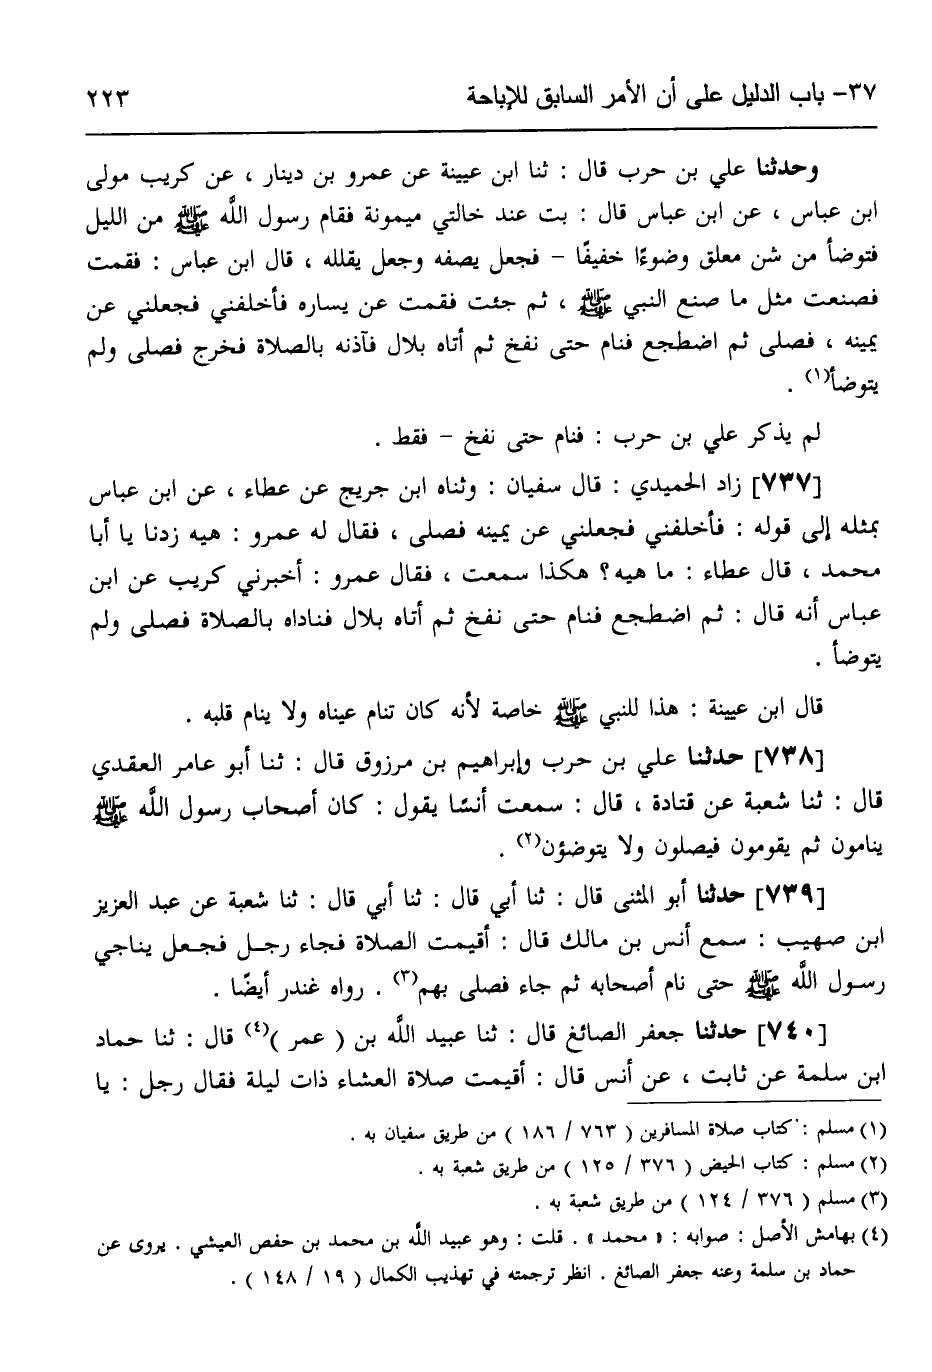 ٣٧- باب الدليل على أن الأمر السابق للإباحة ٢٢٣
وحدثنا علي بن حرب قال : ثنا ابن عيينة عن عمرو بن دينار ، عن كريب مولى
ابن عباس ، عن ابن عباس قال : بت عند خالتي ميمونة فقام رسول اللَّه ﷺ من الليل
فتوضأ من شن معلق وضوءًا خفيفًا – فجعل يصفه وجعل يقلله ، قال ابن عباس : فقمت
فصنعت مثل ما صنع النبي ﷺ ، ثم جئت فقمت عن يساره فأخلفني فجعلني عن
يمينه ، فصلى ثم اضطجع فنام حتى نفخ ثم أتاه بلال فآذنه بالصلاة فخرج فصلى ولم
يتوضأ(١) .
لم يذكر علي بن حرب : فنام حتى نفخ – فقط .
[٧٣٧] زاد الحميدي : قال سفيان : وثناه ابن جريج عن عطاء ، عن ابن عباس
بمثله إلى قوله : فأخلفني فجعلني عن يمينه فصلى ، فقال له عمرو : هيه زدنا يا أبا
محمد ، قال عطاء : ما هيه؟ هكذا سمعت ، فقال عمرو : أخبرني كريب عن ابن
عباس أنه قال : ثم اضطجع فنام حتى نفخ ثم أتاه بلال فناداه بالصلاة فصلى ولم
يتوضأ .
قال ابن عيينة : هذا للنبي ﷺ خاصة لأنه كان تنام عيناه ولا ينام قلبه .
[٧٣٨] حدثنا علي بن حرب وإبراهيم بن مرزوق قال : ثنا أبو عامر العقدي
قال : ثنا شعبة عن قتادة ، قال : سمعت أنسًا يقول : كان أصحاب رسول اللَّه ﷺ
ينامون ثم يقومون فيصلون ولا يتوضؤن(٢) .
[٧٣٩] حدثنا أبو المثنى قال : ثنا أبي قال : ثنا أبي قال : ثنا شعبة عن عبد العزيز
ابن صهيب : سمع أنس بن مالك قال : أقيمت الصلاة فجاء رجل فجعل يناجي
رسول اللَّه ﷺ حتى نام أصحابه ثم جاء فصلى بهم(٣) . رواه غندر أيضًا .
[٧٤٠] حدثنا جعفر الصائغ قال : ثنا عبيد اللَّه بن ( عمر )(٤) قال : ثنا حماد
ابن سلمة عن ثابت ، عن أنس قال : أقيمت صلاة العشاء ذات ليلة فقال رجل : يا
(١) مسلم : كتاب صلاة المسافرين ( ٧٦٣ / ١٨٦ ) من طريق سفيان به .
(٢) مسلم : كتاب الحيض ( ٣٧٦ / ١٢٥ ) من طريق شعبة به .
(٣) مسلم ( ٣٧٦ / ١٢٤ ) من طريق شعبة به .
(٤) بهامش الأصل : صوابه : « محمد » . قلت : وهو عبيد اللَّه بن محمد بن حفص العيشي . يروى عن
حماد بن سلمة وعنه جعفر الصائغ . انظر ترجمته في تهذيب الكمال ( ١٩ / ١٤٨ ) .